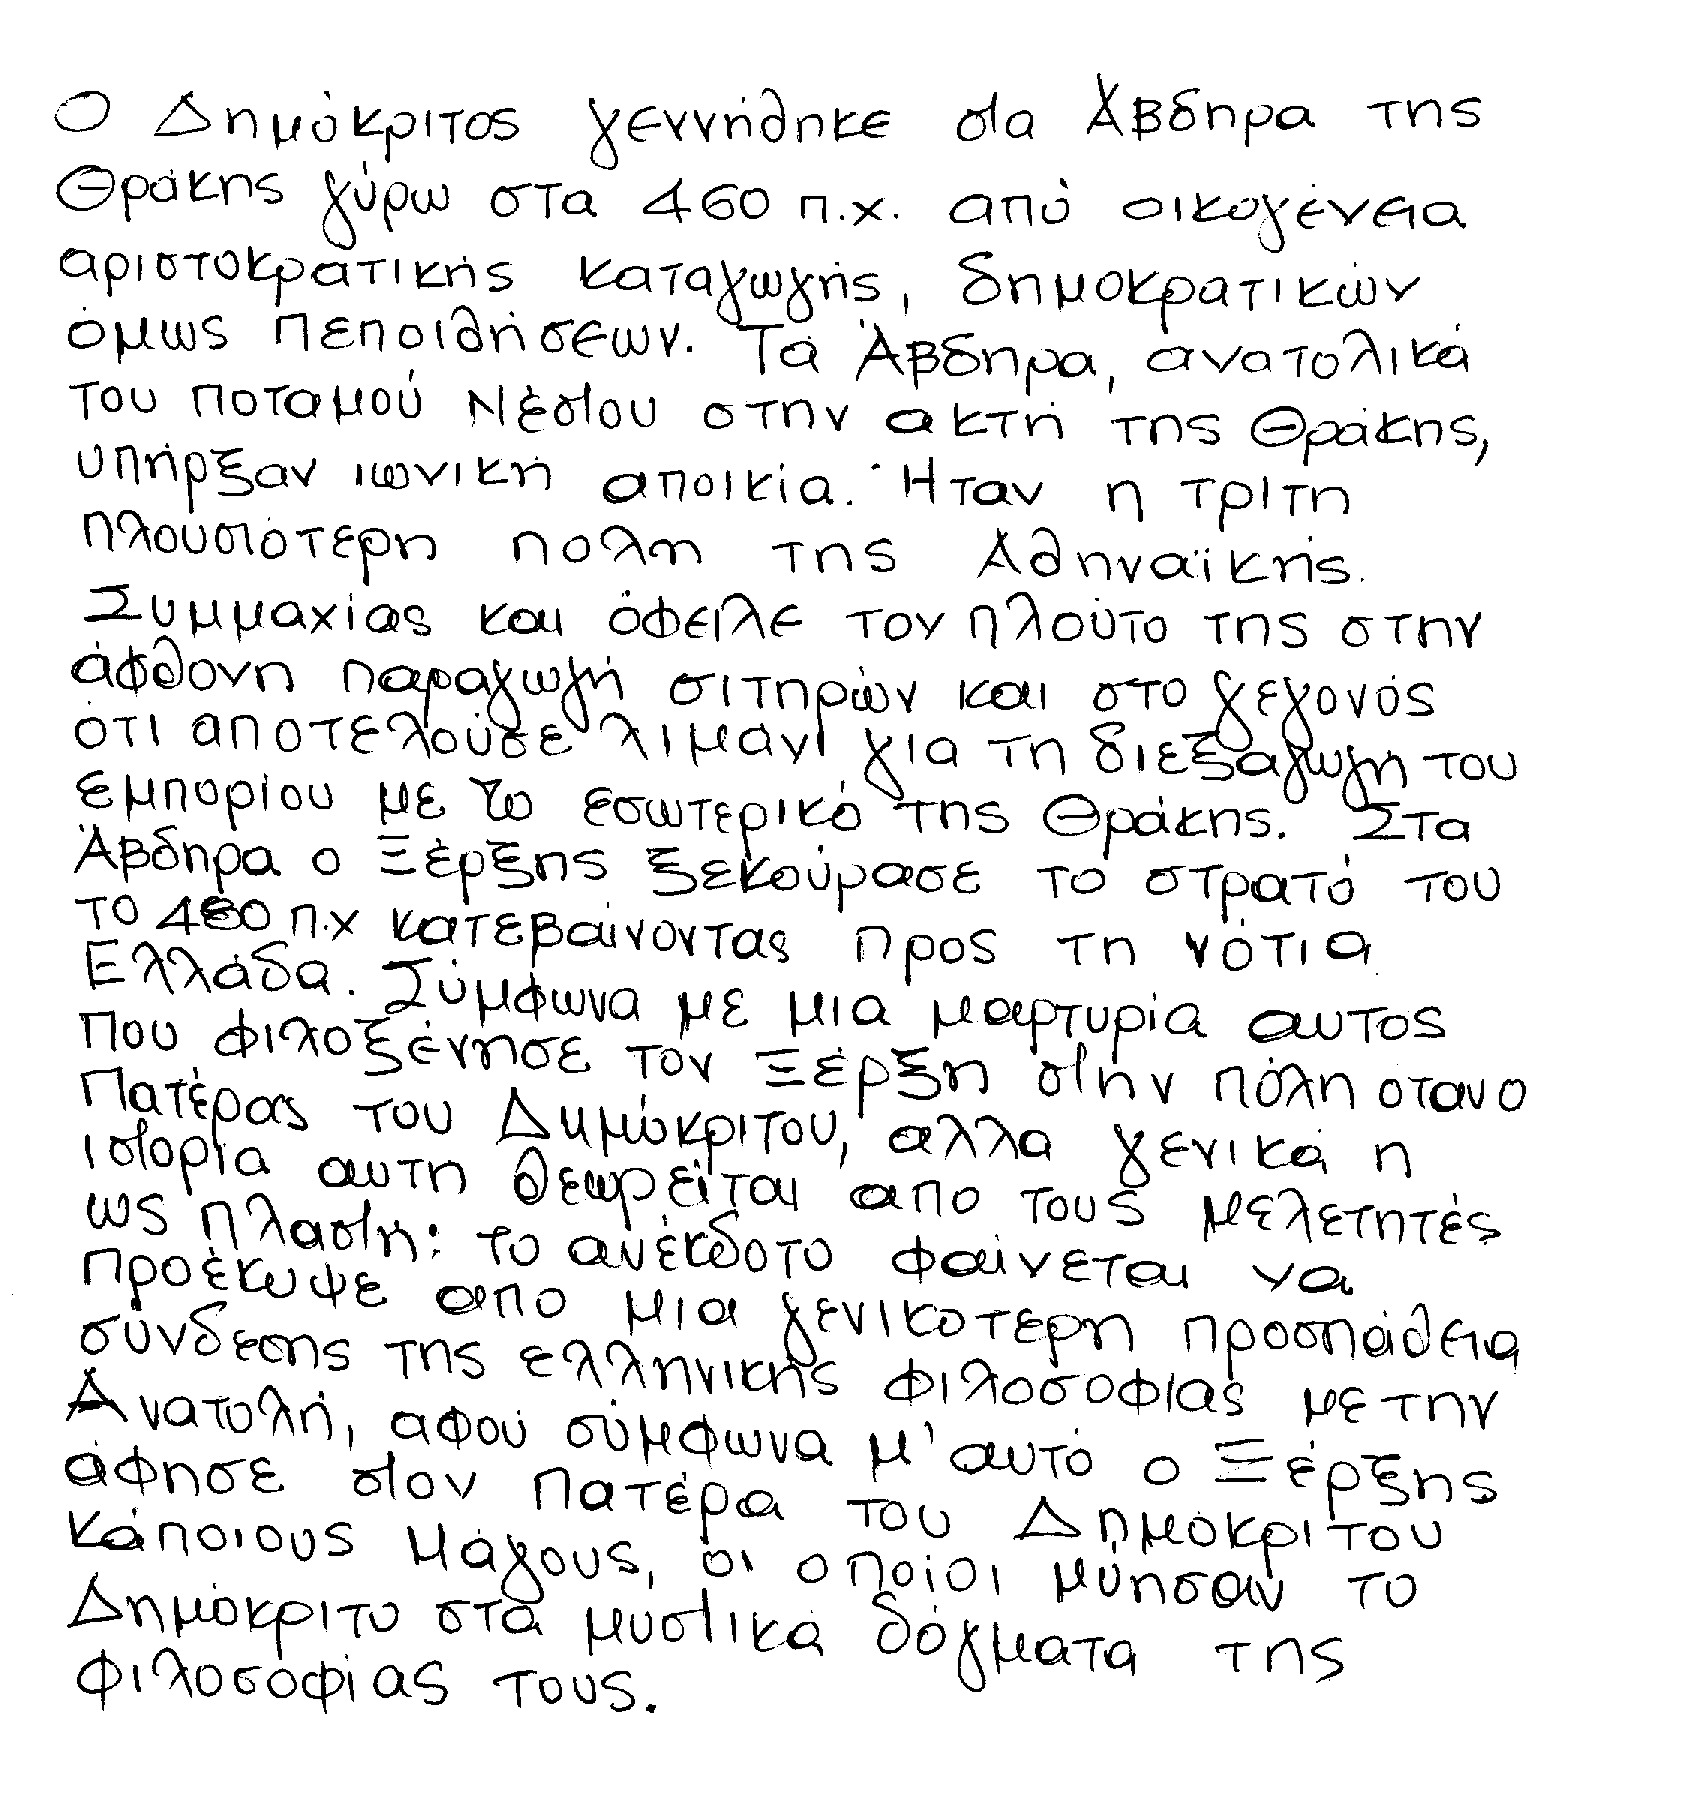 Ο Δημόκριτος γεννήθηκε στα Άβδηρα της
Θράκης γύρω στα 460 π.χ. από οικογένεια
αριστοκρατικής καταγωγής, δημοκρατικών
όμως πεποιθήσεων. Τα Άβδηρα, ανατολικά
του ποταμού Νέστου στην ακτή της Θράκης,
υπήρξαν ιωνική αποικία. Ήταν η τρίτη
πλουσιότερη πόλη της Αθηναϊκής.
Συμμαχίας και όφειλε τον πλούτο της στην
άφθονη παραγωγή σιτηρών και στο γεγονός
ότι αποτελούσε λιμάνι για τη διεξαγωγή του
εμπορίου με το εσωτερικό της Θράκης. Στα
Άβδηρα ο Ξέρξης ξεκούρασε το στρατό του
το 480 π.χ κατεβαίνοντας προς τη νότια
Ελλάδα. Σύμφωνα με μια μαρτυρία αυτος
που φιλοξένησε τον Ξέρξη στην πόλη οταν ο
Πατέρας του Δημόκριτου, αλλα γενικά η
ιστορία αυτη θεωρείται απο τους μελετητές
ως πλαστη: το ανέκδοτο φαίνεται να
προέκυψε απο μια γενικοτερη προσπάθεια
σύνδεσης της ελληνικής φιλοσοφίας με την
Ανατολή, αφού σύμφωνα μ' αυτό ο Ξέρξης
άφησε στον πατέρα του Δημόκριτου
κάποιους Μάγους, οι οποίοι μύησαν το
Δημόκριτο στα μυστικά δόγματα της
φιλοσοφίας τους.